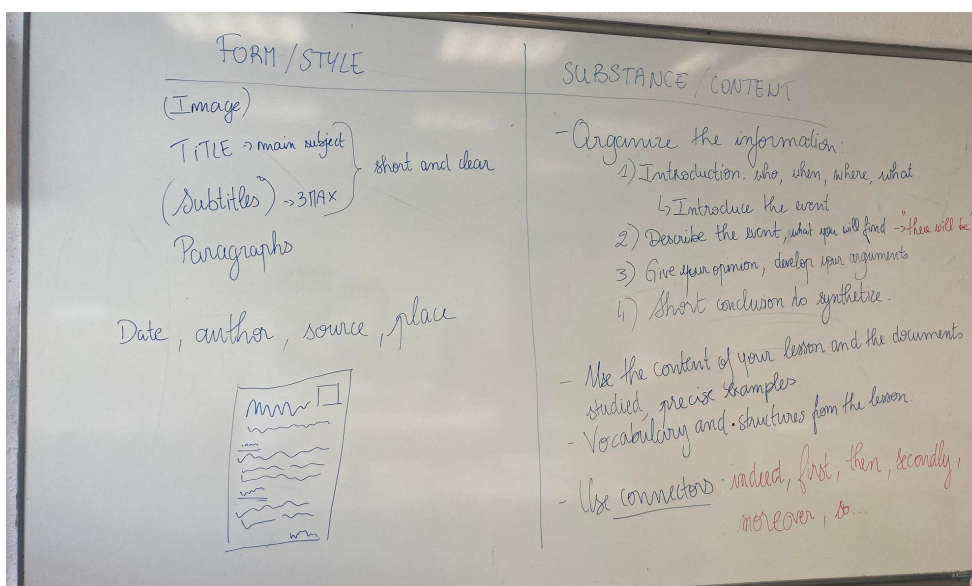 FORM / STYLE
(Image)
TITLE → main subject
(Subtitles) → 3 MAX
short and clear
Paragraphs
Date, author, source, place
SUBSTANCE / CONTENT
- Organize the information:
1) Introduction: who, when, where, what
↳ Introduce the event
2) Describe the event, what you will find → "there will be
3) Give your opinion, develop your arguments
4) Short conclusion to synthetize.
- Use the content of your lesson and the documents
studied, precise examples
- Vocabulary and structures from the lesson.
- Use connectors: indeed, first, then, secondly,
moreover, so...